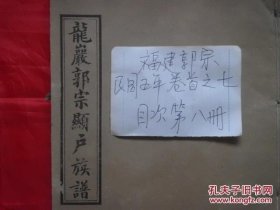 龍巖郭宗顯戶族譜
福建郭宗
民国五年卷首之七
目次第八册